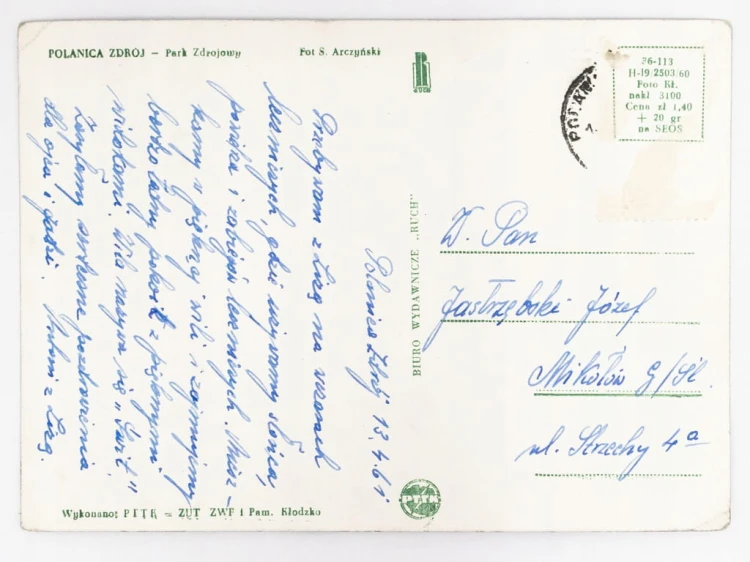 POLANICA ZDRÓJ – Park Zdrojowy
Fot S. Arczyński
RUCH
36-113
H-19/2503/60
Foto Kł.
nakł 3100
Cena zł 1,40
+ 20 gr
na SFOS
Polanica Zdrój 13.4.61
Przebywam z Lizą na wczasach
leczniczych, gdzie używamy słońca,
powietrza i zabiegów leczniczych. Miesz-
kamy w pięknej willi i zajmujemy
bardzo ładny pokoik z pięknymi
widokami. Willa nazywa się "Świt"
Zasyłamy serdeczne pozdrowienia
dla ojca i Gabi. Antoni z Lizą.
BIURO WYDAWNICZE „RUCH"
W. Pan
Jastrzębski Józef
Mikołów G/Śl.
ul. Strzechy 4a
PTTK
Wykonano: PTTK – ZUT ZWF i Pam. Kłodzko